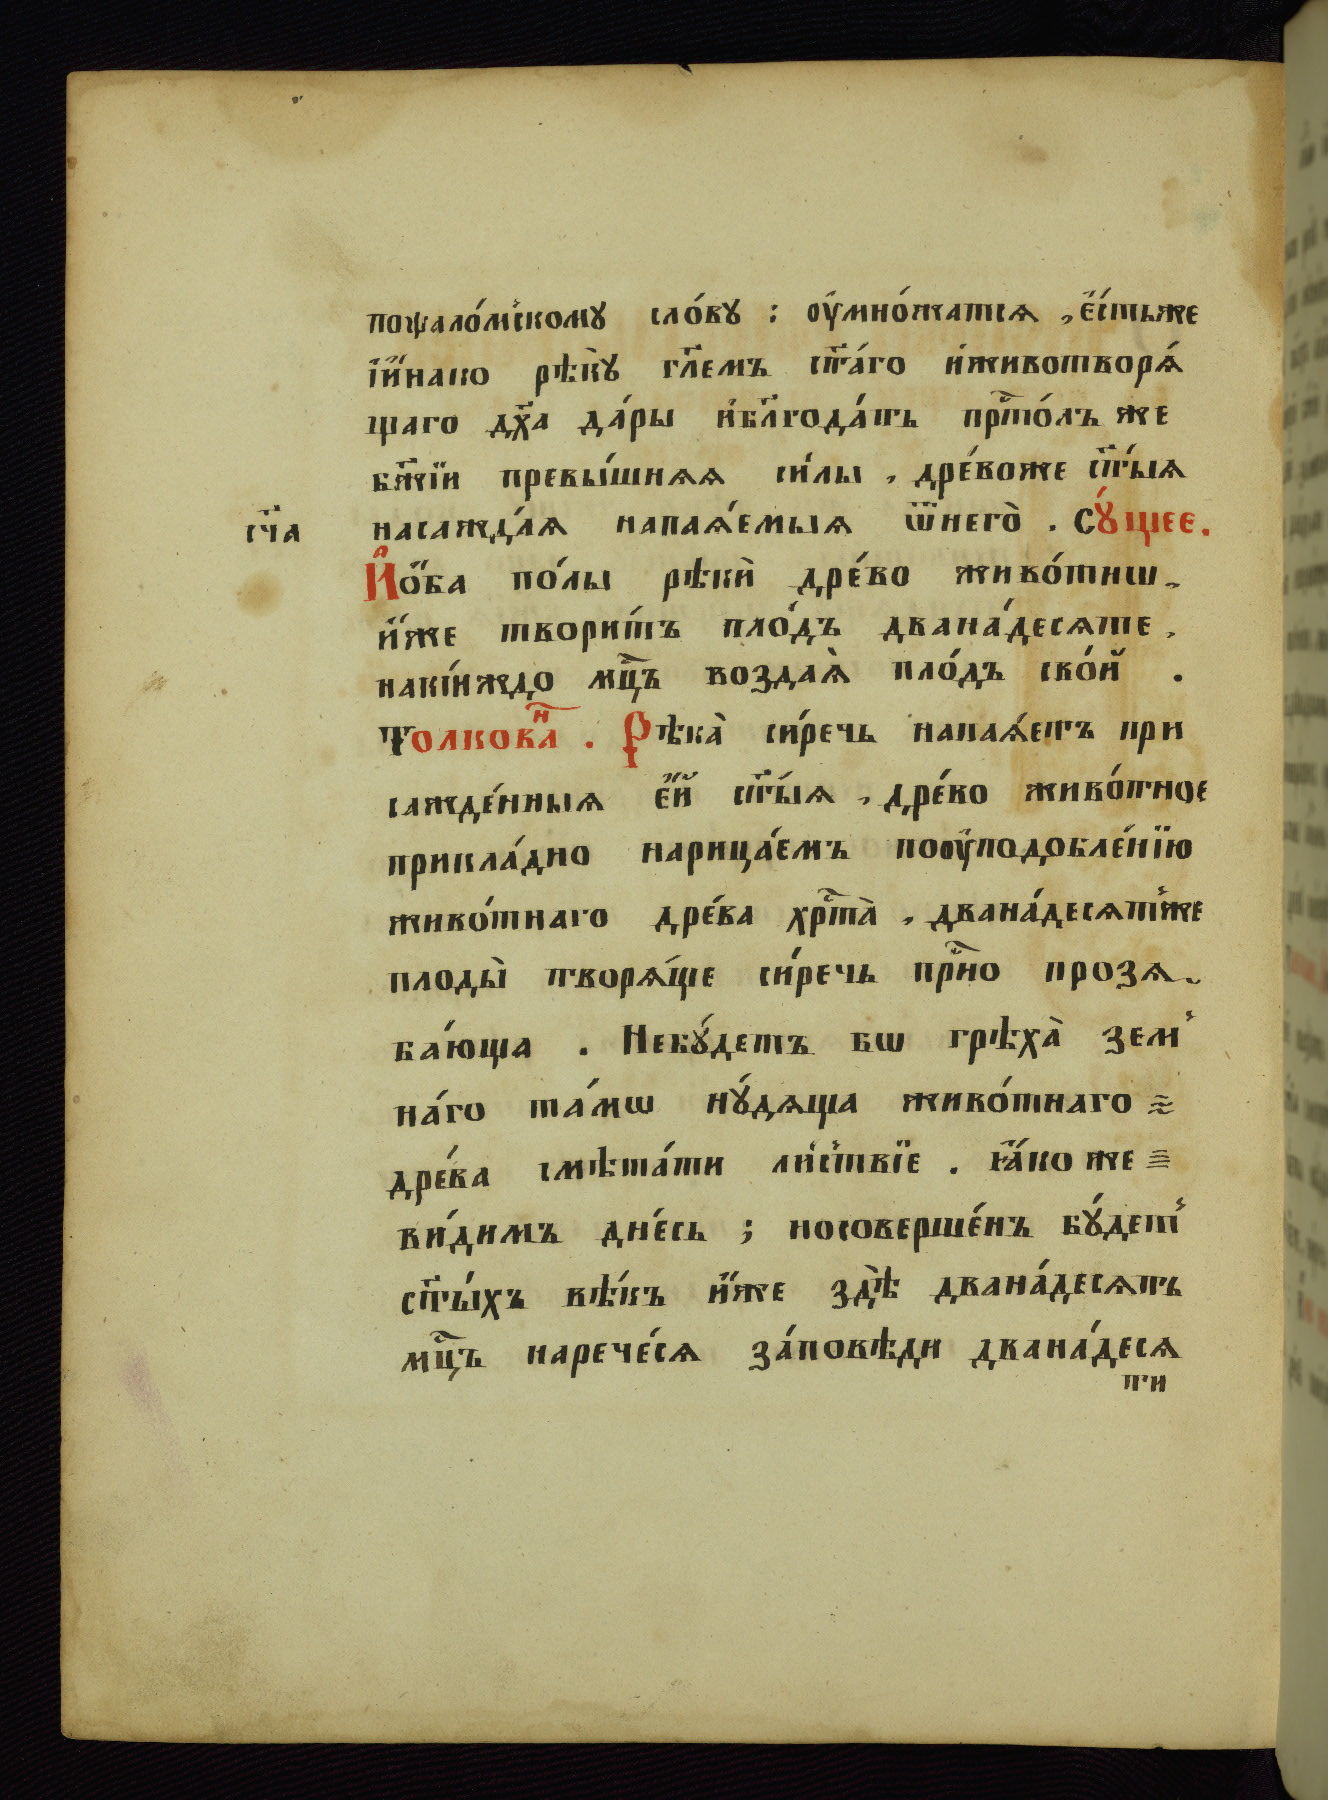 поѱало́мскому сло́ву : ᲂу҆мно́жатсѧ , є҆́стьже
і҆и҆́нако рѣ́кꙋ гл҃емъ ст҃а́го и҆животворѧ́
щаго дх҃а да́ры и҆бл҃года́ть прⷭ҇то́лъ же
бж҃їи превы́шнѧѧ си́лы , дре́воже ст҃ы́ѧ
сч҃а насажда́ѧ напаѧ́емыѧ ѿнего̀ . Сꙋ́щее .
И҆ѻ҆́ба по́лы рѣкѝ дре́во живо́тнѡ ,
и҆́же твори́тъ пло́дъ двана́десѧте ,
накі́йждо мц҃ъ воздаѧ̀ пло́дъ сво́й .
Толковⷩ҇а . Рѣка̀ си́речь напаѧ́етъ при
сажде́нныѧ є҆́й ст҃ы́ѧ , дре́во живо́тное
прикла́дно нарица́емъ поᲂу҆подобле́нїю
живо́тнаго дре́ва хрⷭ҇та̀ , двана́десѧтьже
плоды̀ творѧ́ще си́речь прⷭ҇но прозѧ
ба́юща . Небꙋ́детъ бѡ грѣха̀ зем
на́го та́мѡ нꙋ́дѧща живо́тнаго
дре́ва смѣта́ти ли́ствїе . ꙗ҆́коже
ви́димъ дне́сь ; носоверше́нъ бꙋ́дет
ст҃ы́хъ вѣ́къ и҆́же здѣ̀ двана́десѧть
мц҃ъ нарече́сѧ за́повѣди двана́десѧ
ти